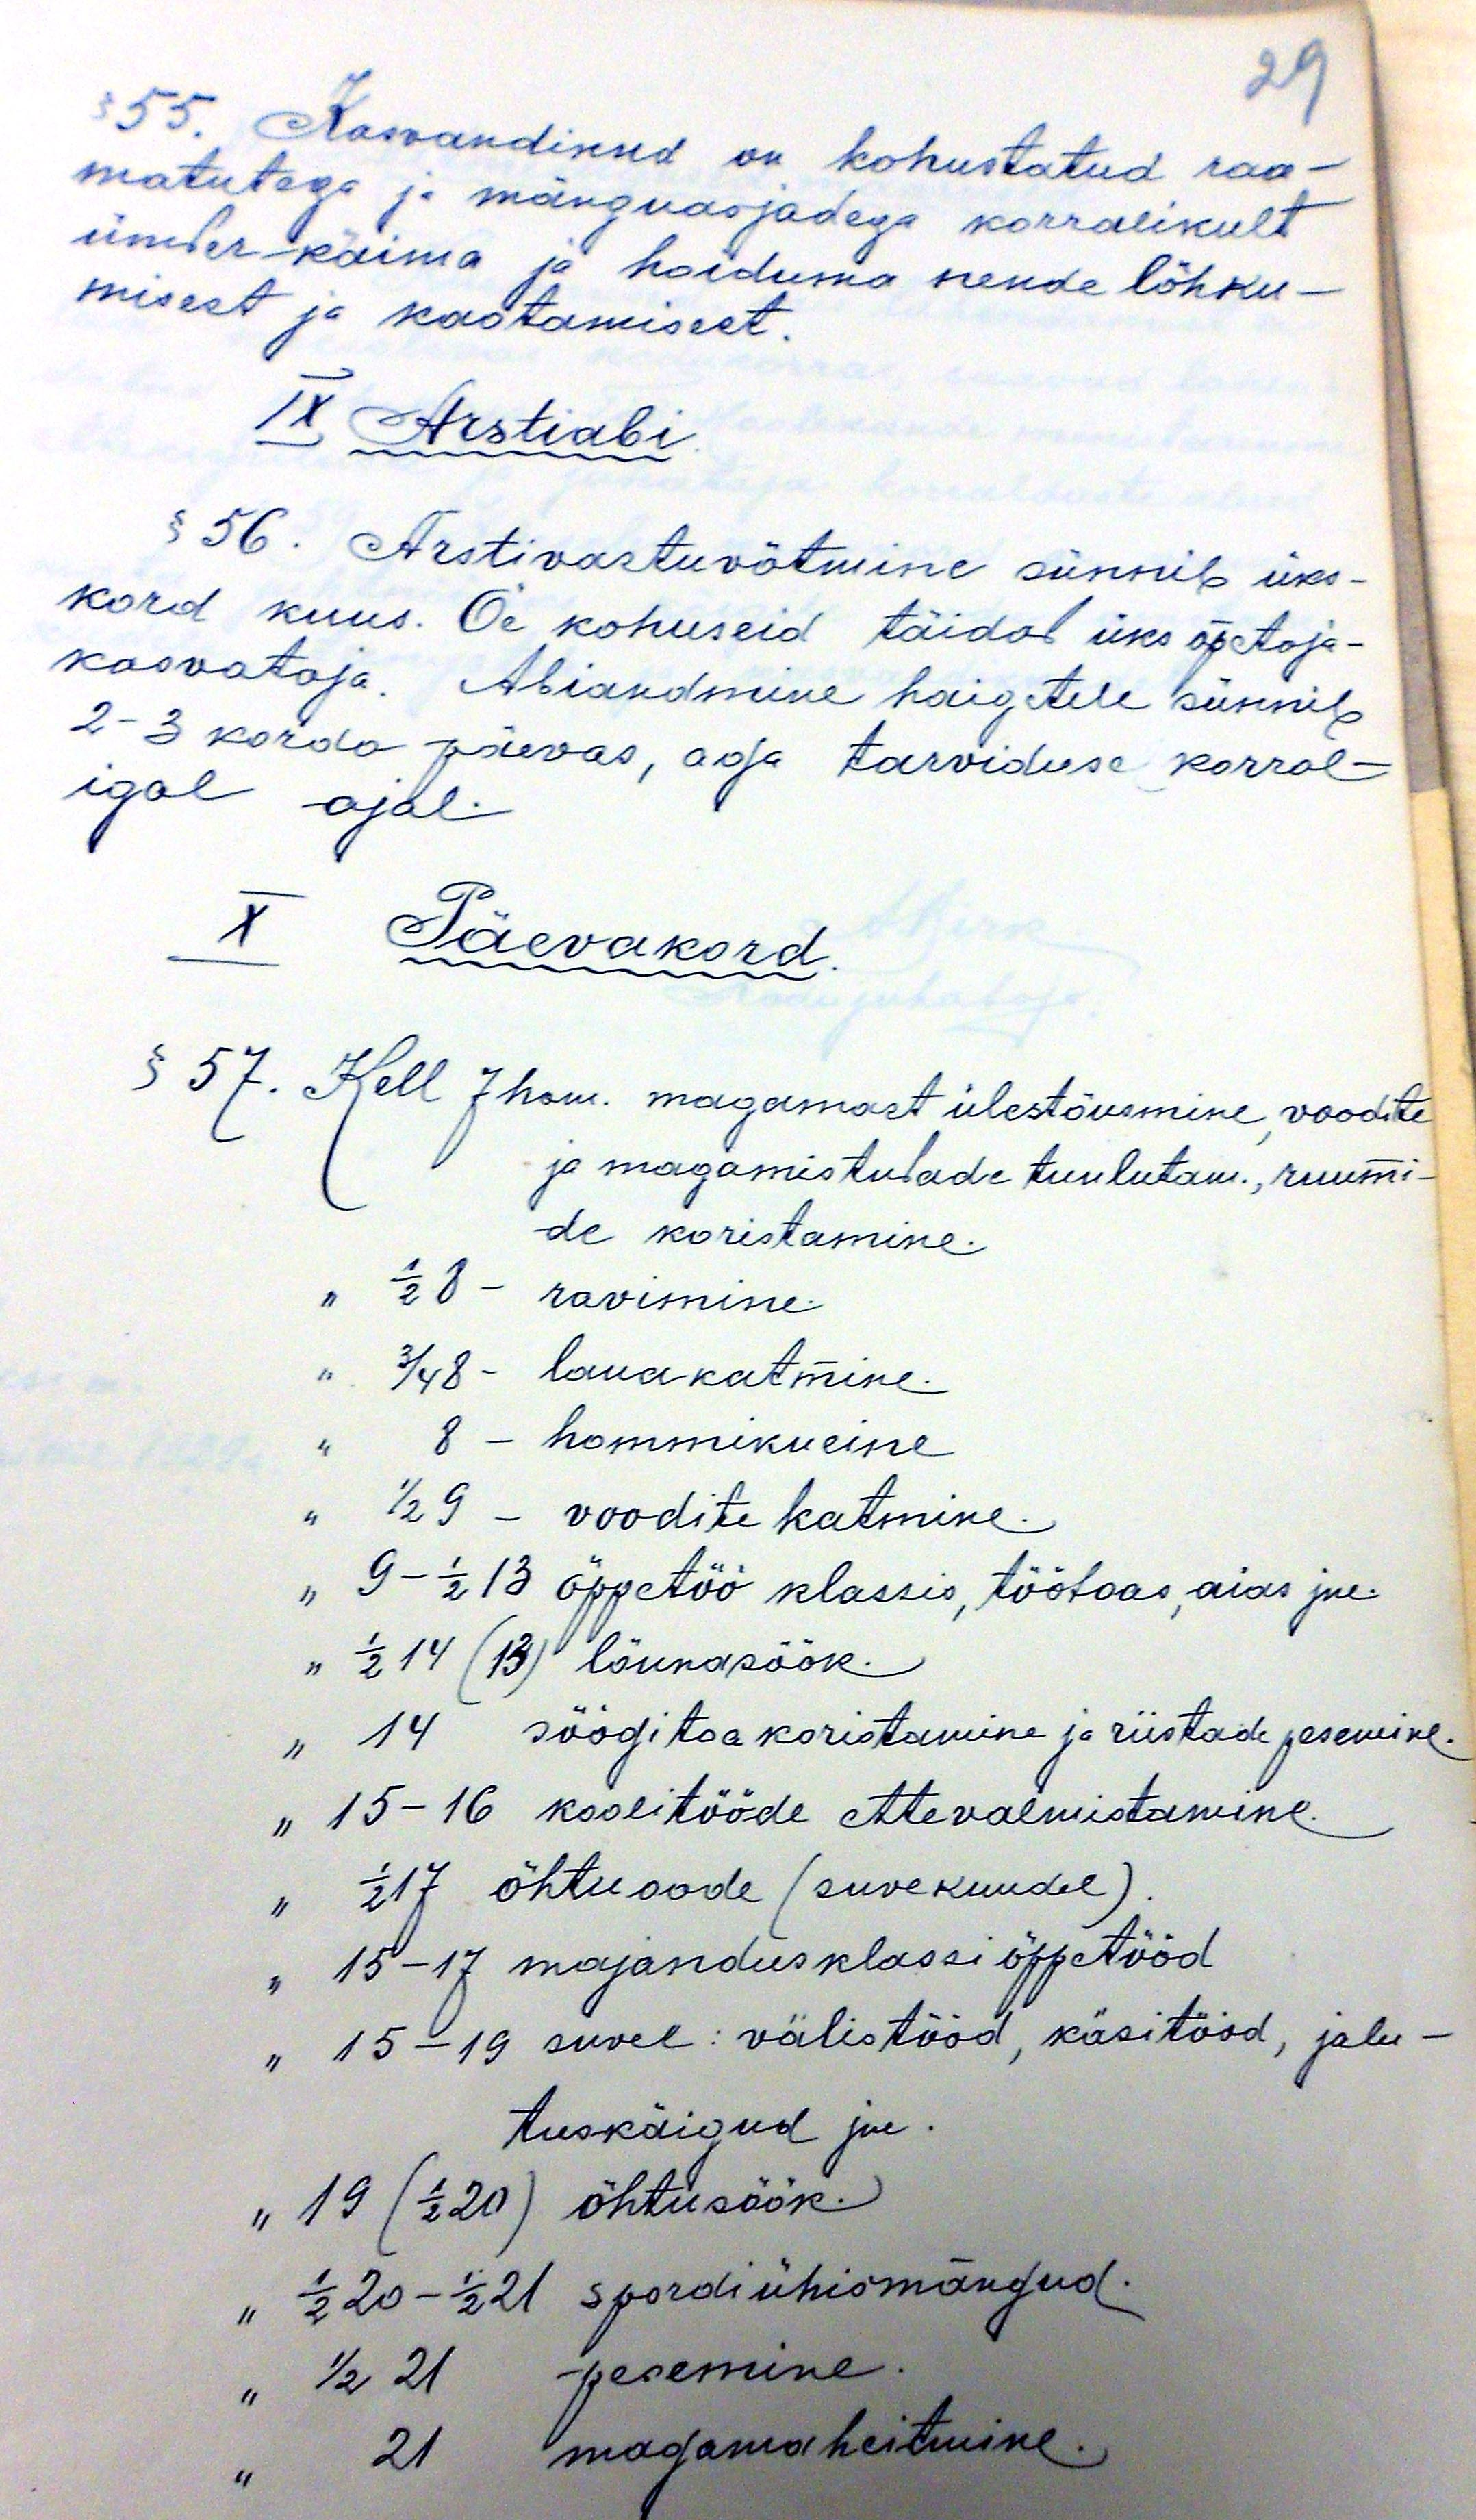 29
§ 55. Kasvandikud on kohustatud raa-
matutega ja mänguasjadega korralikult
ümber käima ja hoiduma nende lõhku-
misest ja kaotamisest.
IX Arstiabi.
§ 56. Arstivastuvõtmine sünnib üks-
kord kuus. Õe kohuseid täidab üks õpetaja-
kasvataja. Abiandmine haigetele sünnib
2-3 korda päevas, aga tarviduse korral -
igal ajal.
X Päevakord.
§ 57. Kell 7 hom. magamast ülestõusmine, voodite
ja magamistubade tuulutam., ruumi-
de koristamine.
" ½ 8 - ravimine.
" ¾ 8 - lauakatmine.
" 8 - hommikueine
" ½ 9 - voodite katmine.
" 9 - ½ 13 õppetöö klassis, töötoas, aias jne.
" ½ 14 (13) lõunasöök.
" 14 söögitoa koristamine ja riistade pesemine.
" 15-16 koolitööde ettevalmistamine.
" ½ 17 õhtuoode (suvekuudel).
" 15-17 majandusklassi õppetööd
" 15-19 suvel: välistööd, käsitööd, jalu-
tuskäigud jne.
" 19 (½ 20) õhtusöök.
" ½ 20 - ½ 21 spordiühismängud.
" ½ 21 pesemine.
" 21 magamaheitmine.